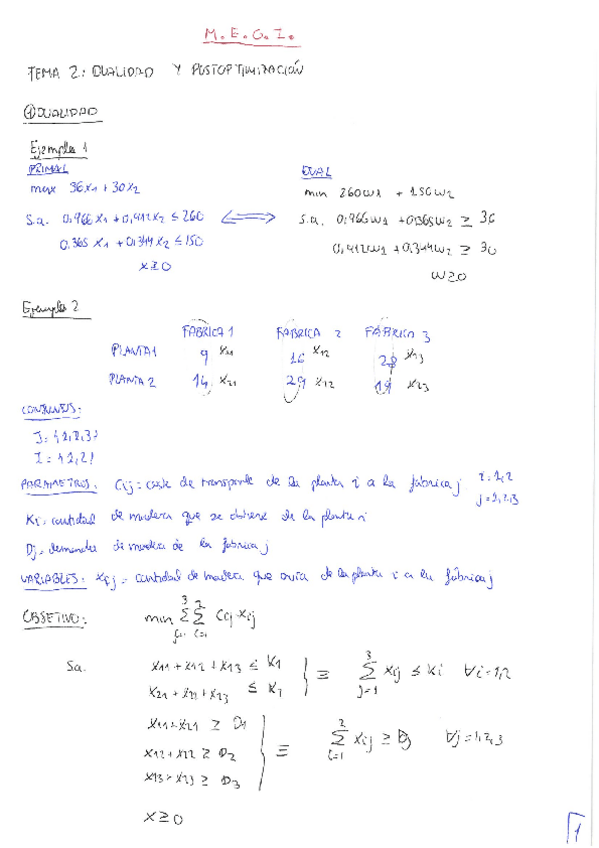 M.E.G.I.
TEMA 2: DUALIDAD Y POSTOPTIMIZACIÓN
① DUALIDAD
Ejemplo 1
PRIMAL
max 36x1 + 30x2
S.a. 0,966 x1 + 0,412 x2 ≤ 260
0,365 x1 + 0,344 x2 ≤ 150
x≥0
DUAL
min 260w1 + 150w2
S.a. 0,966w1 + 0,365w2 ≥ 36
0,412w1 + 0,344w2 ≥ 30
w≥0
Ejemplo 2
FÁBRICA 1 FÁBRICA 2 FÁBRICA 3
PLANTA 1 9 x11 16 x12 28 x13
PLANTA 2 14 x21 29 x12 19 x23
CONJUNTOS:
J = {1,2,3}
I = {1,2}
PARÁMETROS: Cij = coste de transporte de la planta i a la fábrica j i=1,2
j=1,2,3
Ki = cantidad de madera que se obtiene de la planta i
Dj = demanda de madera de la fábrica j
VARIABLES: xij = cantidad de madera que envía de la planta i a la fábrica j
OBJETIVO: min Σ Σ Cij xij
S.a. x11 + x12 + x13 ≤ K1
x21 + x22 + x23 ≤ K2
≡ Σ xij ≤ Ki ∀i=1,2
x11 + x21 ≥ D1
x12 + x22 ≥ D2
x13 + x23 ≥ D3
≡ Σ xij ≥ Dj ∀j=1,2,3
x≥0
1